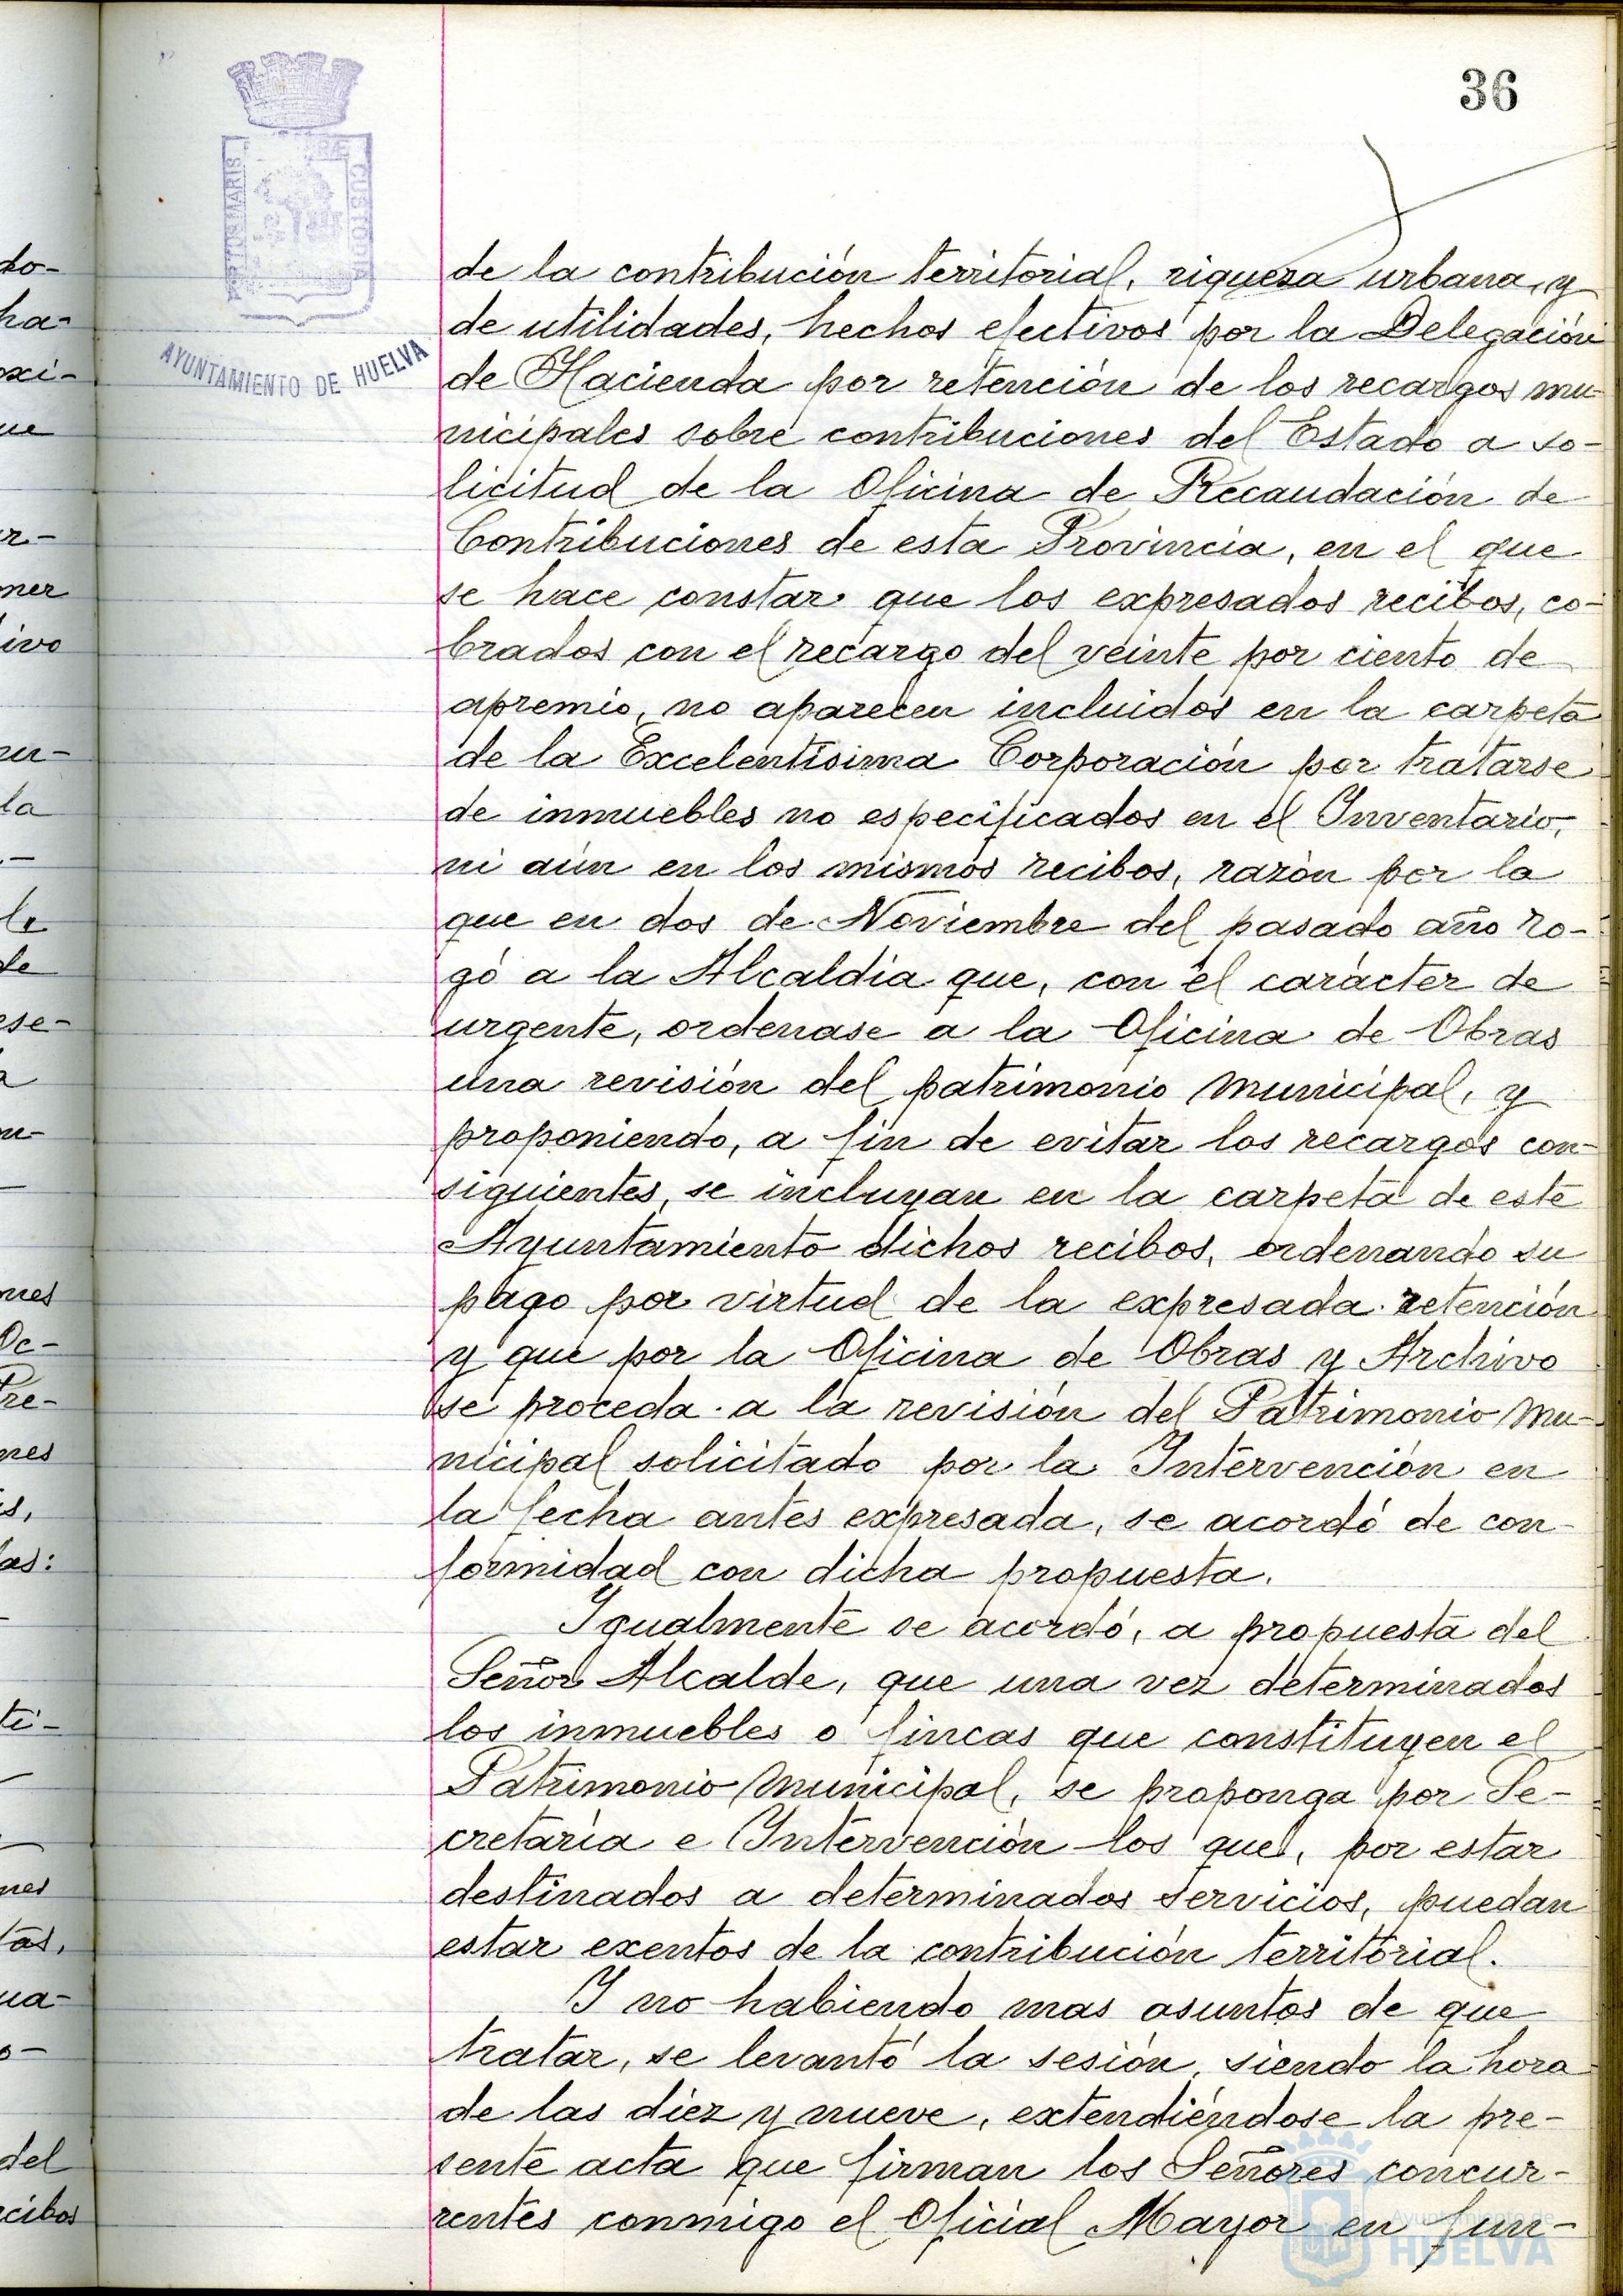 36
PORTUS MARIS
CUSTODIA
AYUNTAMIENTO DE HUELVA
de la contribución territorial, riqueza urbana, y
de utilidades, hechos efectivos por la Delegación
de Hacienda por retención de los recargos mu-
nicipales sobre contribuciones del Estado a so-
licitud de la Oficina de Recaudación de
Contribuciones de esta Provincia, en el que
se hace constar que los expresados recibos, co-
brados con el recargo del veinte por ciento de
apremio, no aparecen incluidos en la carpeta
de la Excelentísima Corporación por tratarse
de inmuebles no especificados en el Inventario,
ni aún en los mismos recibos, razón por la
que en dos de Noviembre del pasado año ro-
gó a la Alcaldía que, con el carácter de
urgente, ordenase a la Oficina de Obras
una revisión del patrimonio municipal, y
proponiendo, a fin de evitar los recargos con-
siguientes, se incluyan en la carpeta de este
Ayuntamiento dichos recibos, ordenando su
pago por virtud de la expresada retención
y que por la Oficina de Obras y Archivo
se proceda a la revisión del Patrimonio Mu-
nicipal solicitado por la Intervención en
la fecha antes expresada, se acordó de con-
formidad con dicha propuesta.
Igualmente se acordó, a propuesta del
Señor Alcalde, que una vez determinados
los inmuebles o fincas que constituyen el
Patrimonio Municipal, se proponga por Se-
cretaría e Intervención los que, por estar
destinados a determinados servicios, puedan
estar exentos de la contribución territorial.
Y no habiendo mas asuntos de que
tratar, se levantó la sesión, siendo la hora
de las diez y nueve, extendiéndose la pre-
sente acta que firman los Señores concur-
rentes conmigo el Oficial Mayor en fun-
Ayuntamiento de
HUELVA